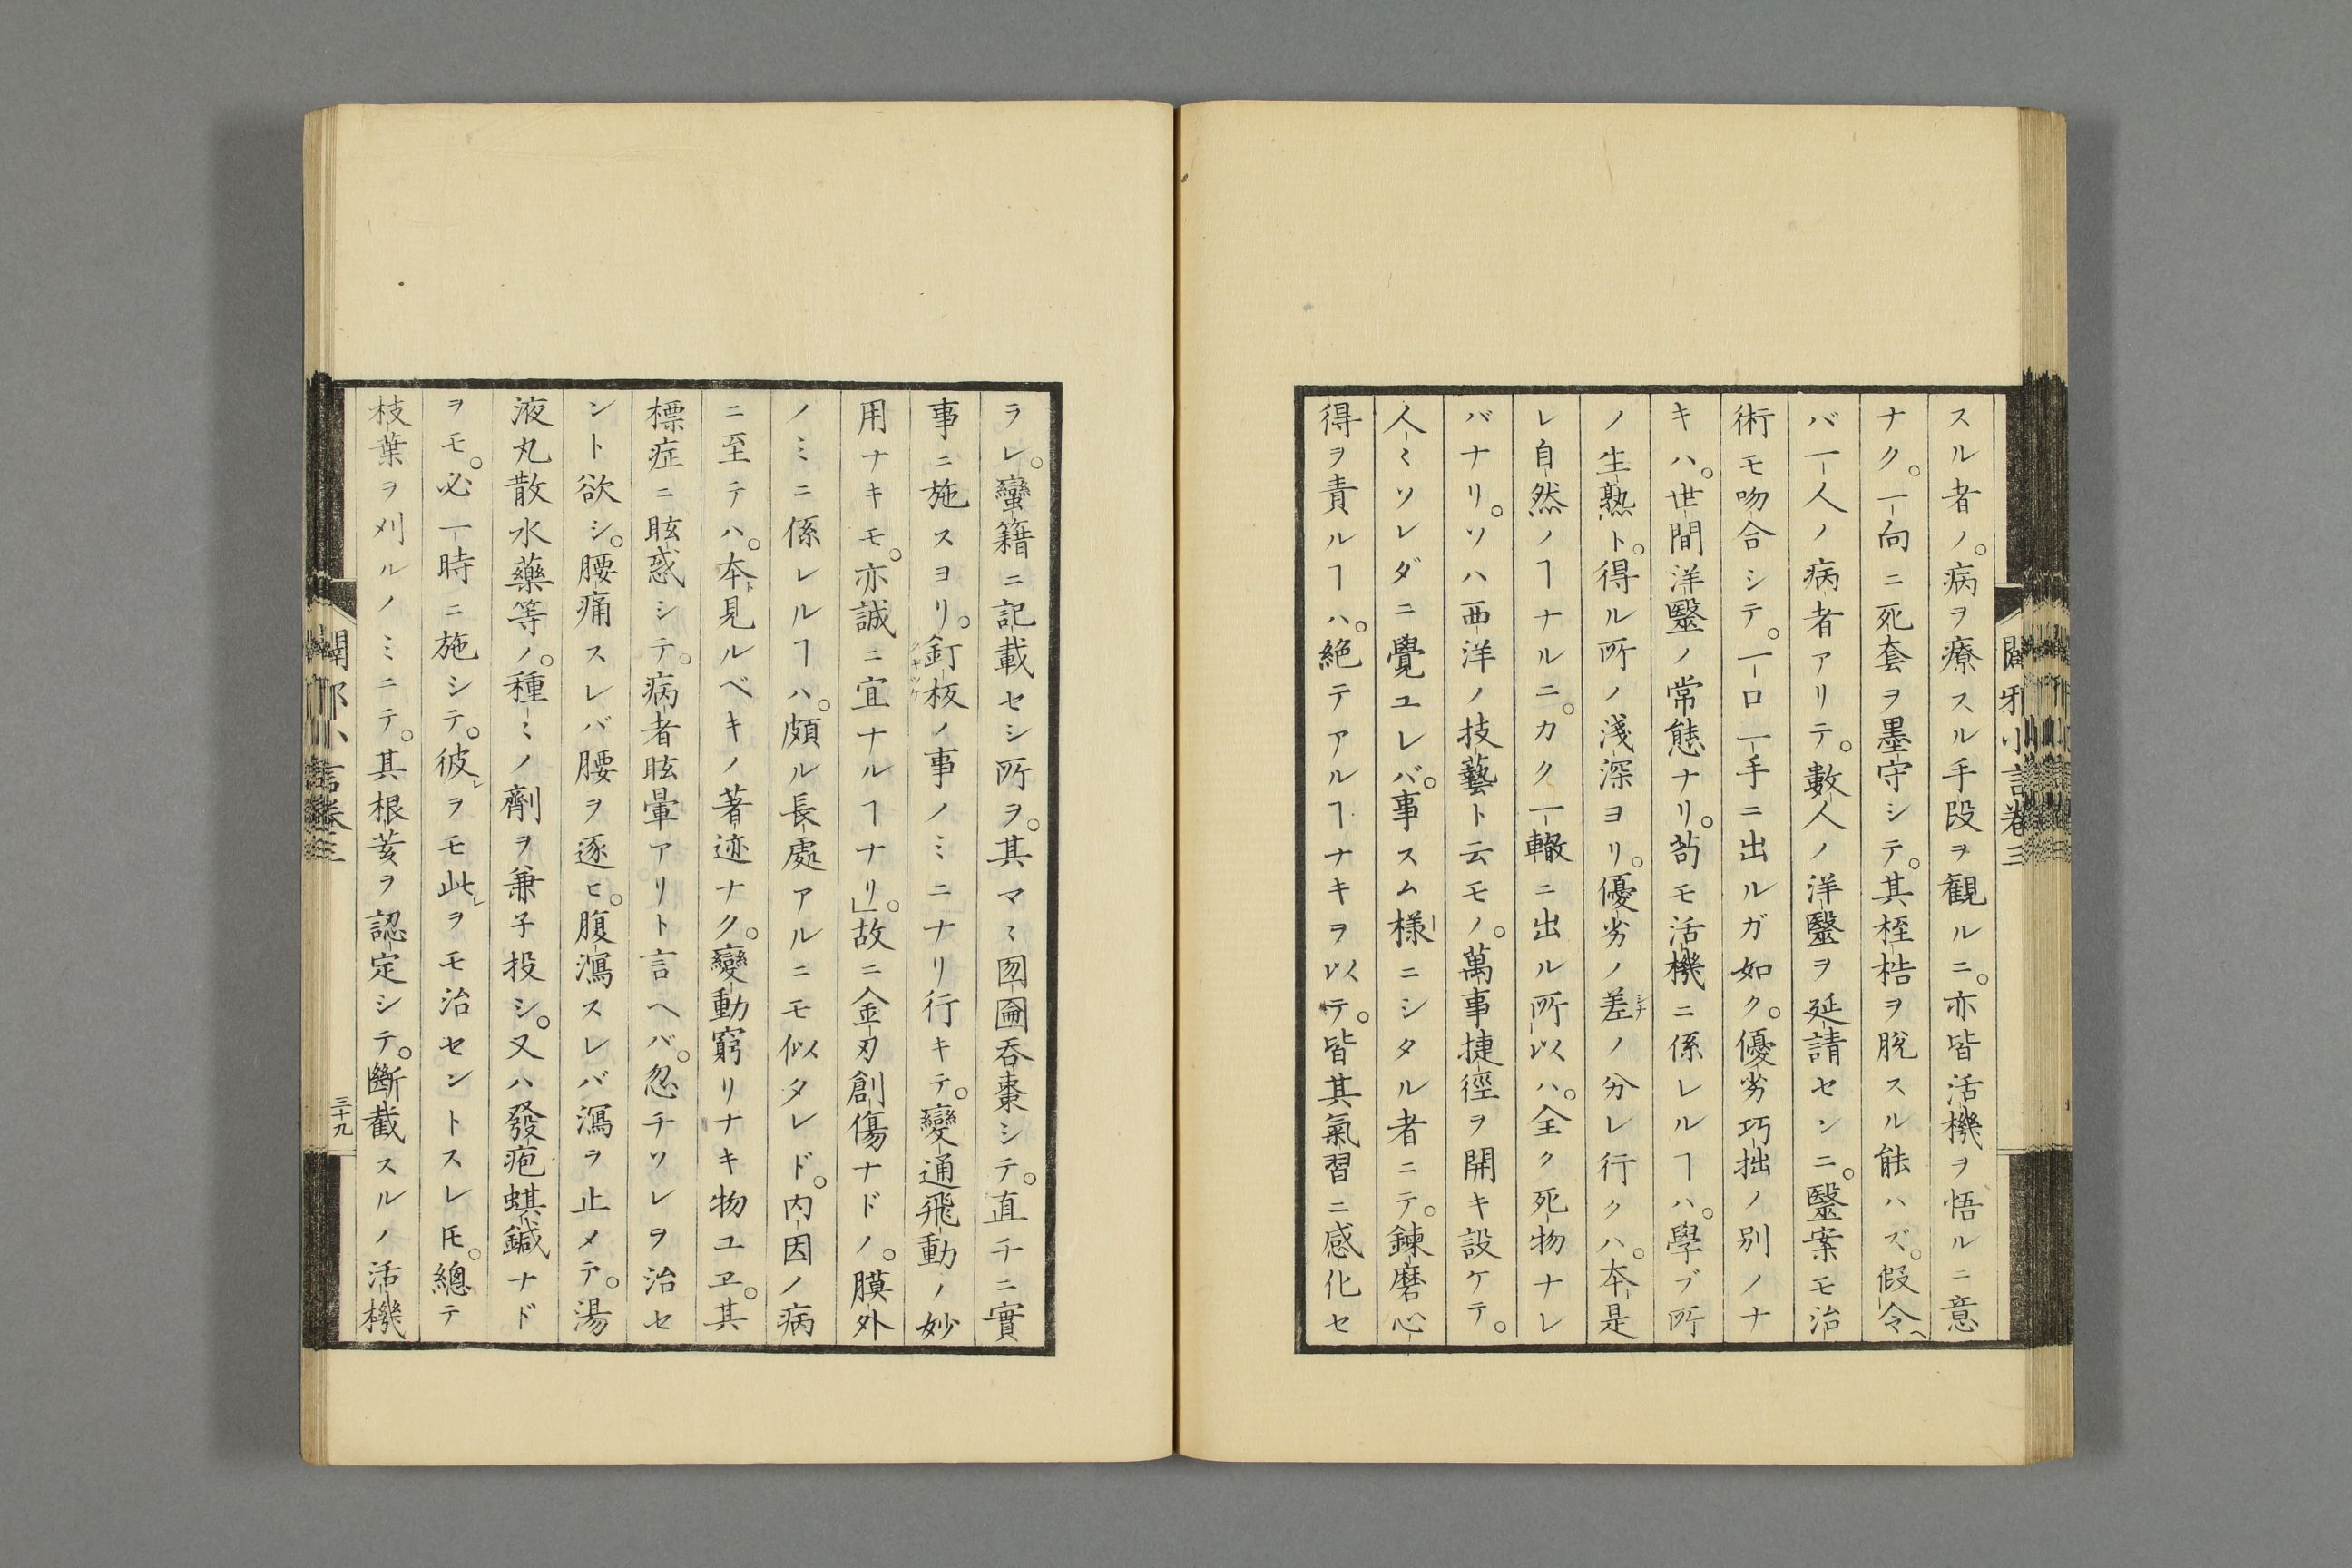 闢邪小言卷三
スル者ノ。病ヲ療スル手段ヲ観ルニ。亦皆活機ヲ悟ルニ意
ナク。一向ニ死套ヲ墨守シテ。其桎梏ヲ脫スル能ハズ。假令ヘ
バ一人ノ病者アリテ。數人ノ洋醫ヲ延請センニ。醫案モ治
術モ吻合シテ。一口一手ニ出ルガ如ク。優劣巧拙ノ別ノナ
キハ。世間洋醫ノ常態ナリ。茍モ活機ニ係レルヿハ。學ブ所
ノ生熟ト。得ル所ノ淺深ヨリ。優劣ノ差シナノ分レ行クハ。本是
レ自然ノヿナルニ。カク一轍ニ出ル所以ハ。全ク死物ナレ
バナリ。ソハ西洋ノ技藝ト云モノ。萬事捷徑ヲ開キ設ケテ。
人〻ソレダニ覺ユレバ。事スム様ニシタル者ニテ。鍊磨心
得ヲ責ルヿハ。絕テアルヿナキヲ以テ。皆其氣習ニ感化セ
ラレ。蠻籍ニ記載セシ所ヲ。其マヽ囫圇呑棗シテ。直チニ實
事ニ施スヨリ。釘板ノ事ノミニナリ行キテ。變通飛動ノ妙
用ナキモ。亦誠ニ宜ナルヿナリ」。故ニ金刃創傷ナドノ。膜外
ノミニ係レルヿハ。頗ル長處アルニモ似タレド。内因ノ病
ニ至テハ。本ト見ルベキノ著迹ナク。變動窮リナキ物ユヱ。其
標症ニ眩惑シテ。病者眩暈アリト言ヘバ。忽チソレヲ治セ
ント欲シ。腰痛スレバ腰ヲ逐ヒ。腹瀉スレバ瀉ヲ止メテ。湯
液丸散水藥等ノ。種〻ノ劑ヲ兼子投シ。又ハ發疱蜞鍼ナド
ヲモ。必一時ニ施シテ。彼レヲモ此レヲモ治セントスレ𪜈。總テ
枝葉ヲ刈ルノミニテ。其根荄ヲ認定シテ。斷截スルノ活機
闢邪小言卷三
三十九